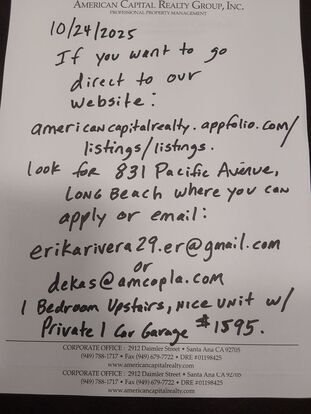 AMERICAN CAPITAL REALTY GROUP, INC.
PROFESSIONAL PROPERTY MANAGEMENT
10/24/2025
If you want to go
direct to our
website:
americancapitalrealty.appfolio.com/
listings/listings.
look for 831 Pacific Avenue,
Long Beach where you can
apply or email:
erikarivera29.er@gmail.com
or
dekas@amcopla.com
1 Bedroom Upstairs, nice unit w/
Private 1 Car Garage $1595.
CORPORATE OFFICE: 2912 Daimler Street • Santa Ana CA 92705
(949) 788-1717 • Fax (949) 679-7722 • DRE #01198425
www.americancapitalrealty.com
CORPORATE OFFICE: 2912 Daimler Street • Santa Ana CA 92705
(949) 788-1717 • Fax (949) 679-7722 • DRE #01198425
www.americancapitalrealty.com